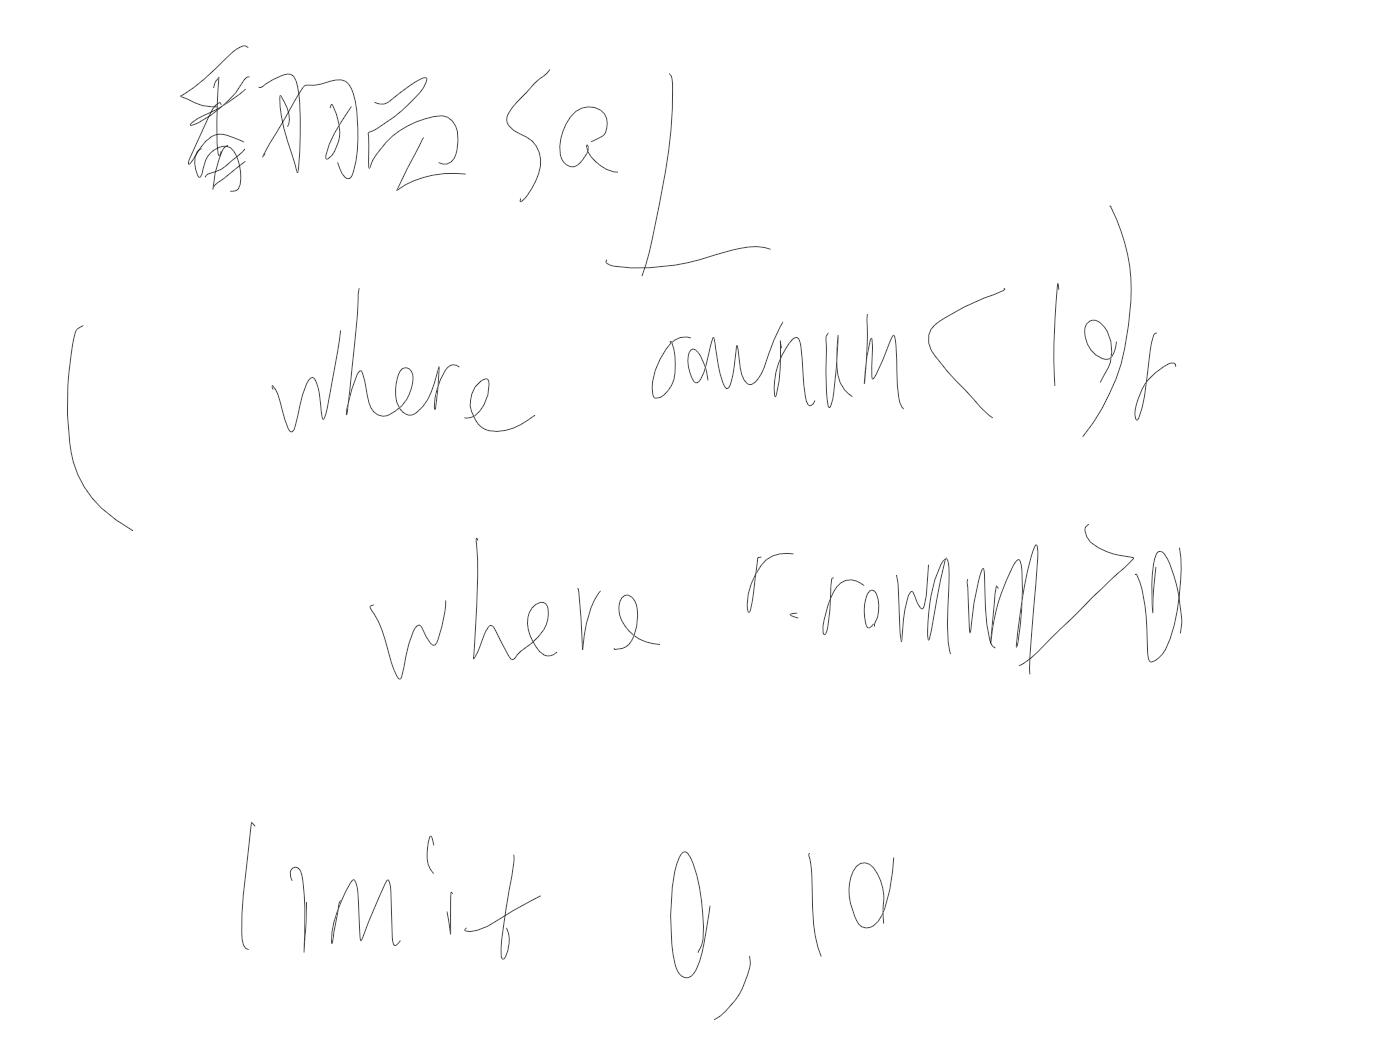 翻页 sql
( where rownum < 10) r
where r.rownum > 0
limit 0, 10